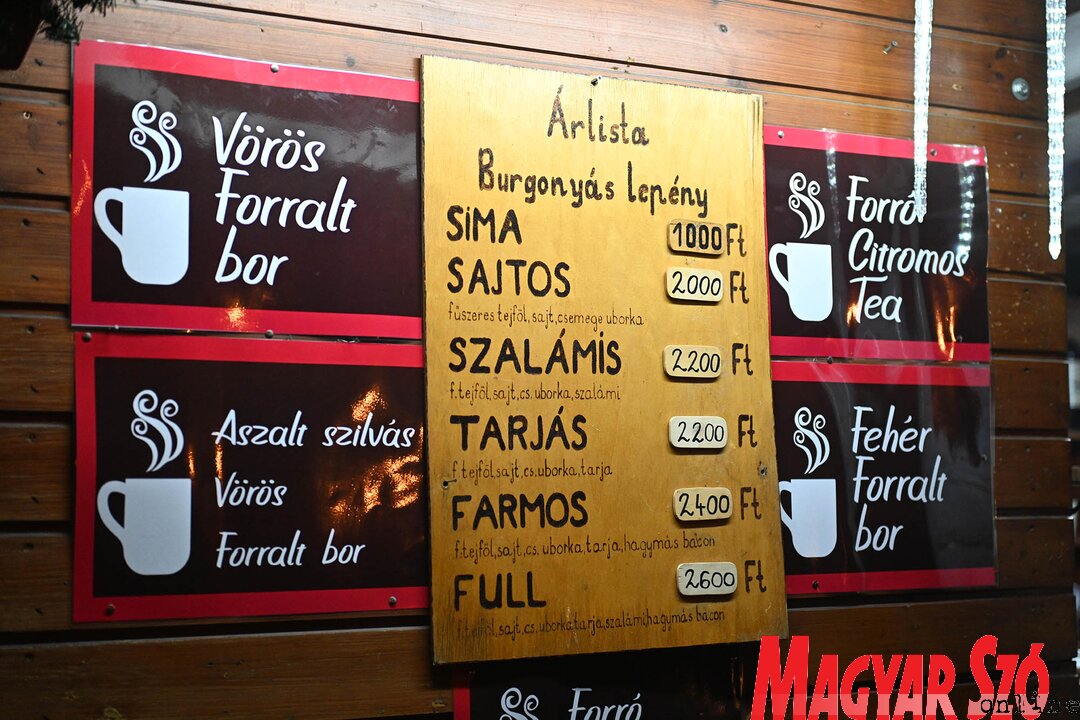 Vörös
Forralt
bor
Aszalt szilvás
Vörös
Forralt bor
Árlista
Burgonyás lepény
SIMA 1000 Ft
SAJTOS 2000 Ft
fűszeres tejföl, sajt, csemege uborka
SZALÁMIS 2200 Ft
f.tejföl, sajt, cs. uborka, szalámi
TARJÁS 2200 Ft
f.tejföl, sajt, cs. uborka, tarja
FARMOS 2400 Ft
f.tejföl, sajt, cs. uborka, tarja, hagymás bacon
FULL 2600 Ft
f.tejföl, sajt, cs. uborka tarja, szalámi, hagymás bacon
Forró
Citromos
Tea
Fehér
Forralt
bor
Forró
MAGYAR SZÓ
online